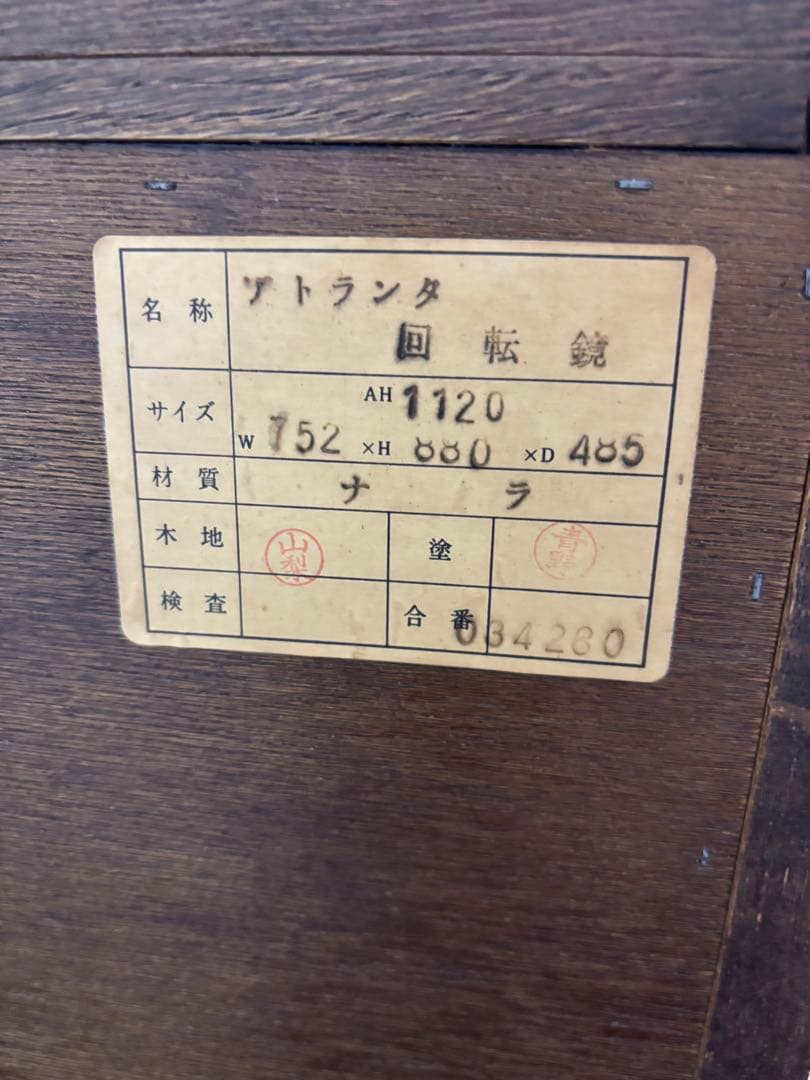 名称 アトランタ
回転鏡
サイズ AH 1120
W 752 ×H 880 ×D 485
材質 ナラ
木地 山梨 塗
検査 合番 034280